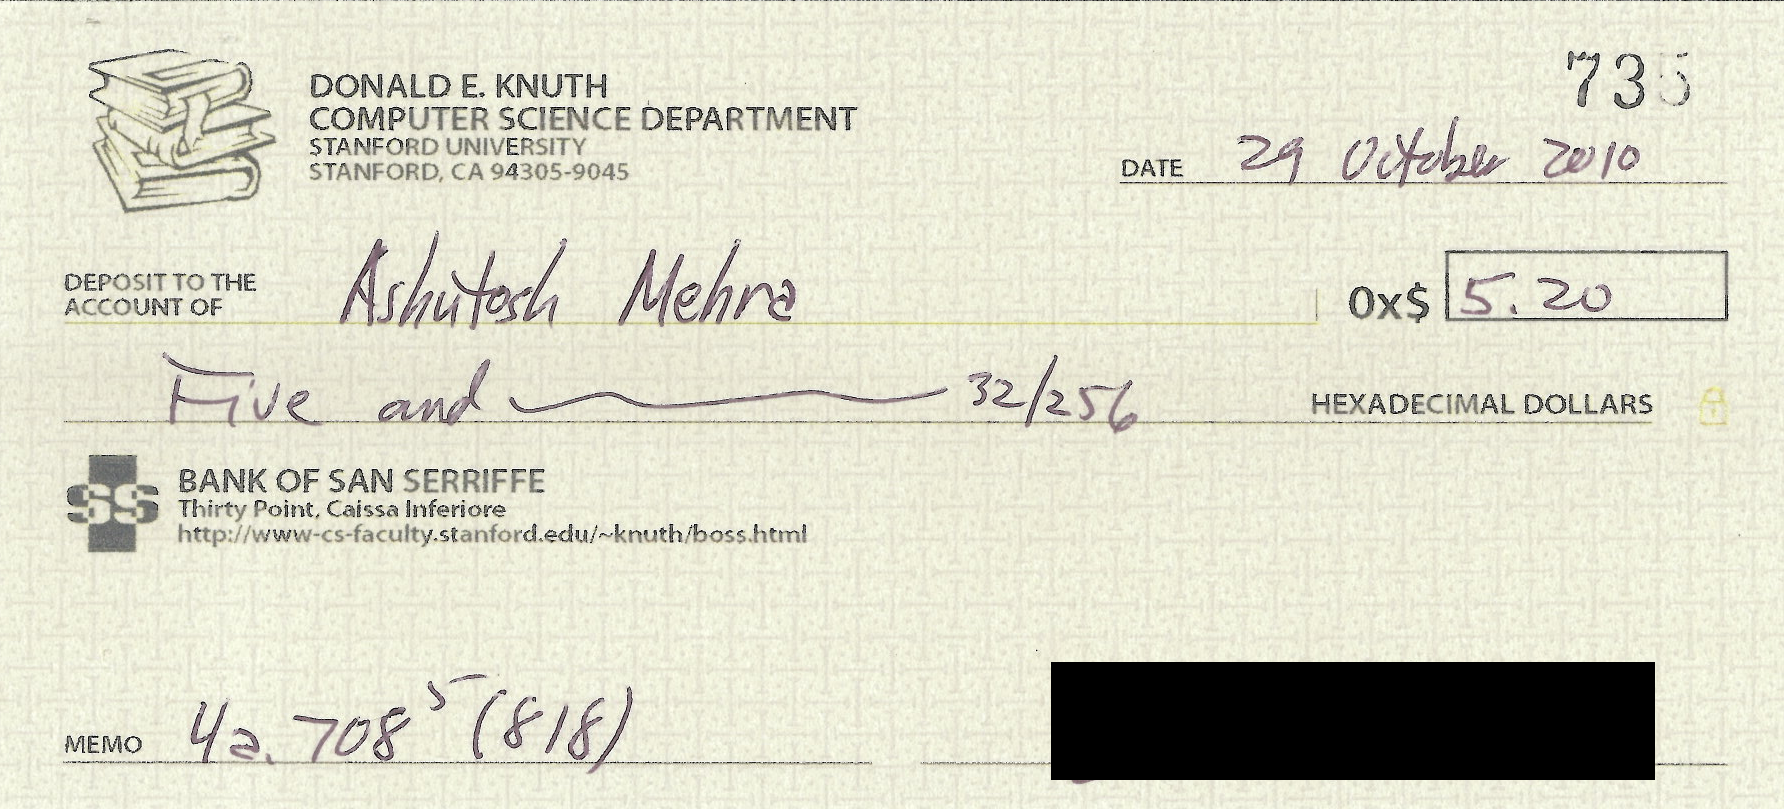 735
DONALD E. KNUTH
COMPUTER SCIENCE DEPARTMENT
STANFORD UNIVERSITY
STANFORD, CA 94305-9045
DATE 29 October 2010
DEPOSIT TO THE
ACCOUNT OF Ashutosh Mehra 0x$ 5.20
Five and 32/256 HEXADECIMAL DOLLARS
SS BANK OF SAN SERRIFFE
Thirty Point, Caissa Inferiore
http://www-cs-faculty.stanford.edu/~knuth/boss.html
MEMO 4a.708⁵ (818)